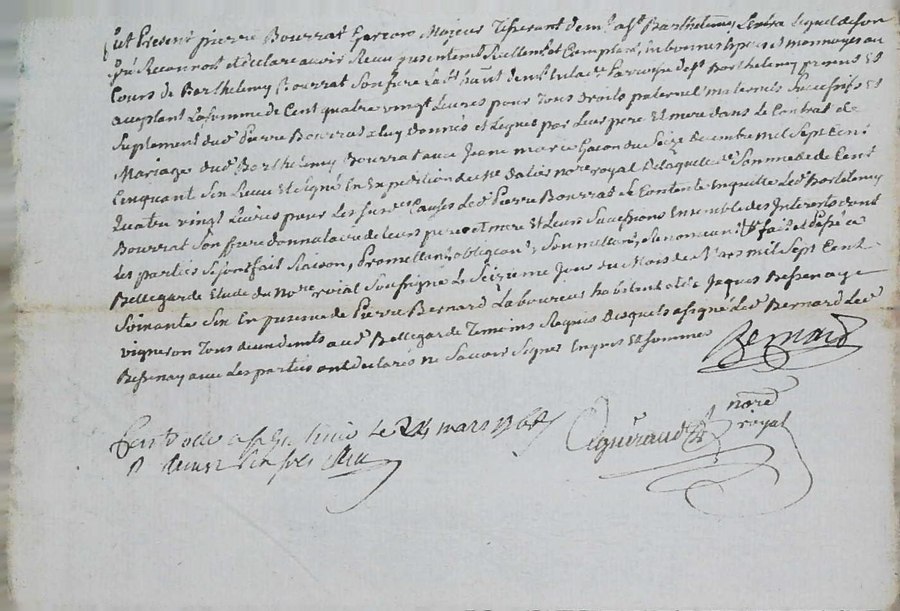 fut Present pierre Bourrat garcon Majeur Tisserant dem^t a S^t Barthelemy Lestra Lequel de son
gré Reconnoit et declare avoir Recu presentem^t Reellem^t et Comptant en bonnes especes et monnoyes au
Cours de Barthelemy Bourrat son frere La^r habitant dem^t en lad^e Parroisse de S^t Barthelemy present et
acceptant La somme de Cent quatre vingt Livres pour Tous droits paternel maternels successifs et
suplement dud^t Pierre Bourrat a luy donnés et Legués par Leurs pere et mere dans le Contrat de
Mariage dud^t Barthelemy Bourrat avec Jeanne marie Gacon du Seize decembre mil Sept Cent
Cinquant Six Receu et Signé En Expedition de M^e no^re royal De laquelle d^e Somme de Cent
Quatre vingt Livres pour Les susd^es Causes Led^t Pierre Bourrat se Contente En quitte Led^t Bartelemy
Bourrat Son frere donnataire de leurs pere et mere Et Leurs Successions Ensemble des Interests dont
les parties se sont fait Raison, Promettant obligeant, Soumettant, Renoncant fait et Passé a
Bellegarde Etude du No^re roial Soussigné Le Seizieme Jour du Mois de Mars mil Sept Cent
Soixante Six En presence de Pierre Bernard Laboureur habitant et de Jaques Bessenay
vigneron Tous deux demts aud^t Bellegarde Temoins Requis Desquels a signé Led^t Bernard Led^t
Bessenay avec Les parties ont declarés ne Scavoir Signer Enquis Et Sommés
Bernard
no^re
royal
le 24 mars 1766
R